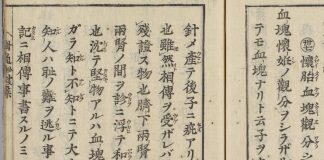 懷胎血塊觀分
血塊懷妊ノ觀分ヲシラザ
テモ血塊ナリト云子ヲ
針メ產テ後子ニ疵アリ
也雖然相傳ヲ受ザレバ
證ス物也臍下兩腎
兩腎ノ間ヲ診ニ浮テ和
也沈テ堅物アルハ血塊
ガラ知ト不知トニテ大
知人ハ恥ノ難ヲ逃ル事
記ニ相傳事書スルノミ